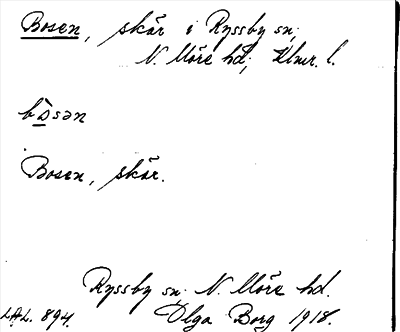 Bosen, skär i Ryssby sn;
N. Möre hd; Klmr. l.
bòsən
Bosen, skär.
Ryssby sn. N. Möre hd.
LAL. 894. Olga Borg 1918.